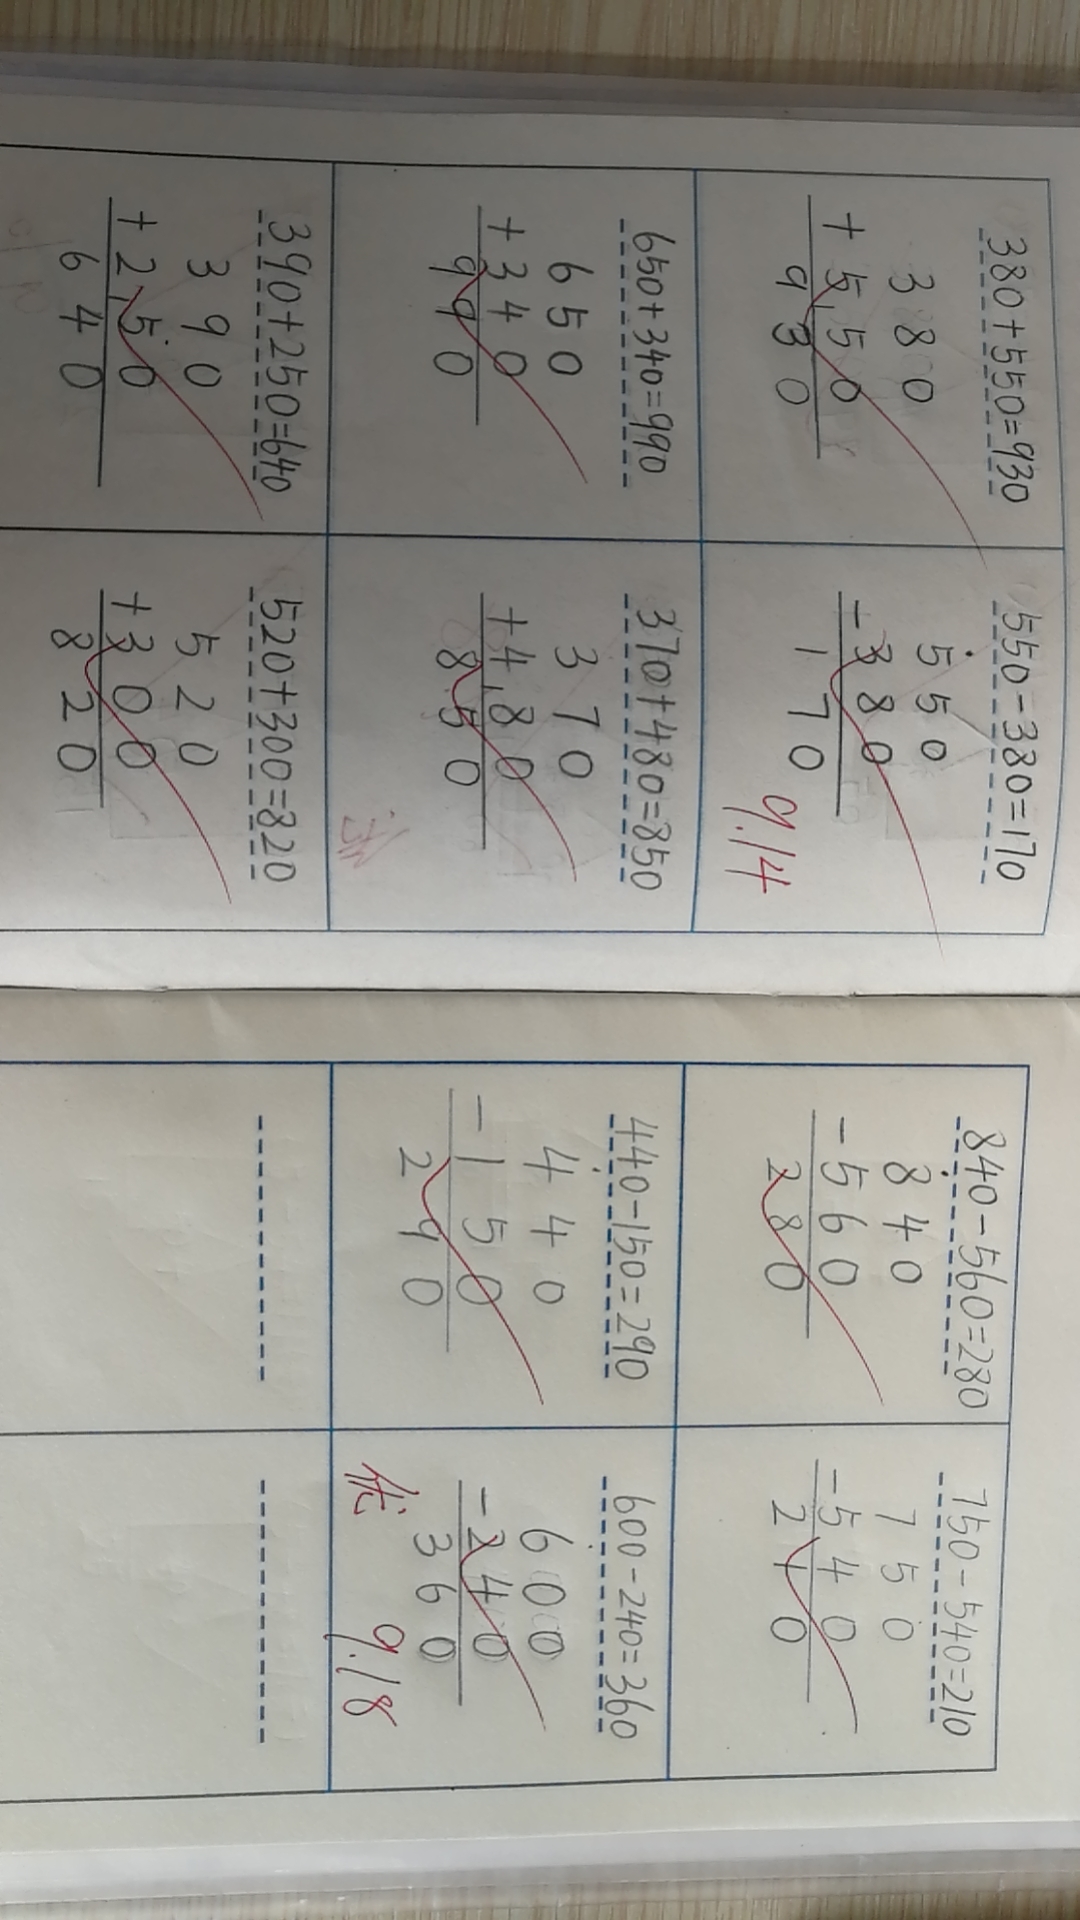 380+550=930
380
+550
930
550-380=170
550
-380
170
9.14
650+340=990
650
+340
990
370+480=850
370
+480
850
390+250=640
390
+250
640
520+300=820
520
+300
820
840-560=280
840
-560
280
750-540=210
750
-540
210
440-150=290
440
-150
290
600-240=360
600
-240
360
优
9.18